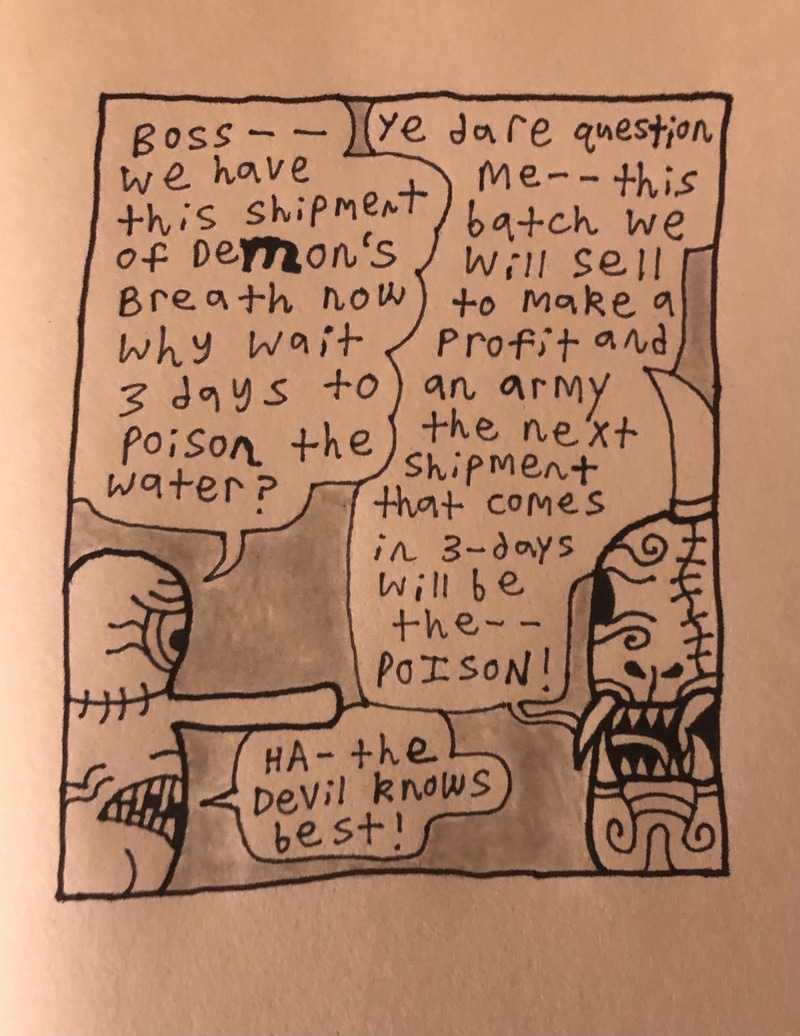 Boss--
we have
this shipment
of Demon's
Breath now
why wait
3 days to
poison the
water?
ye dare question
me--this
batch we
will sell
to make a
profit and
an army
the next
shipment
that comes
in 3-days
will be
the--
POISON!
HA- the
Devil knows
best!